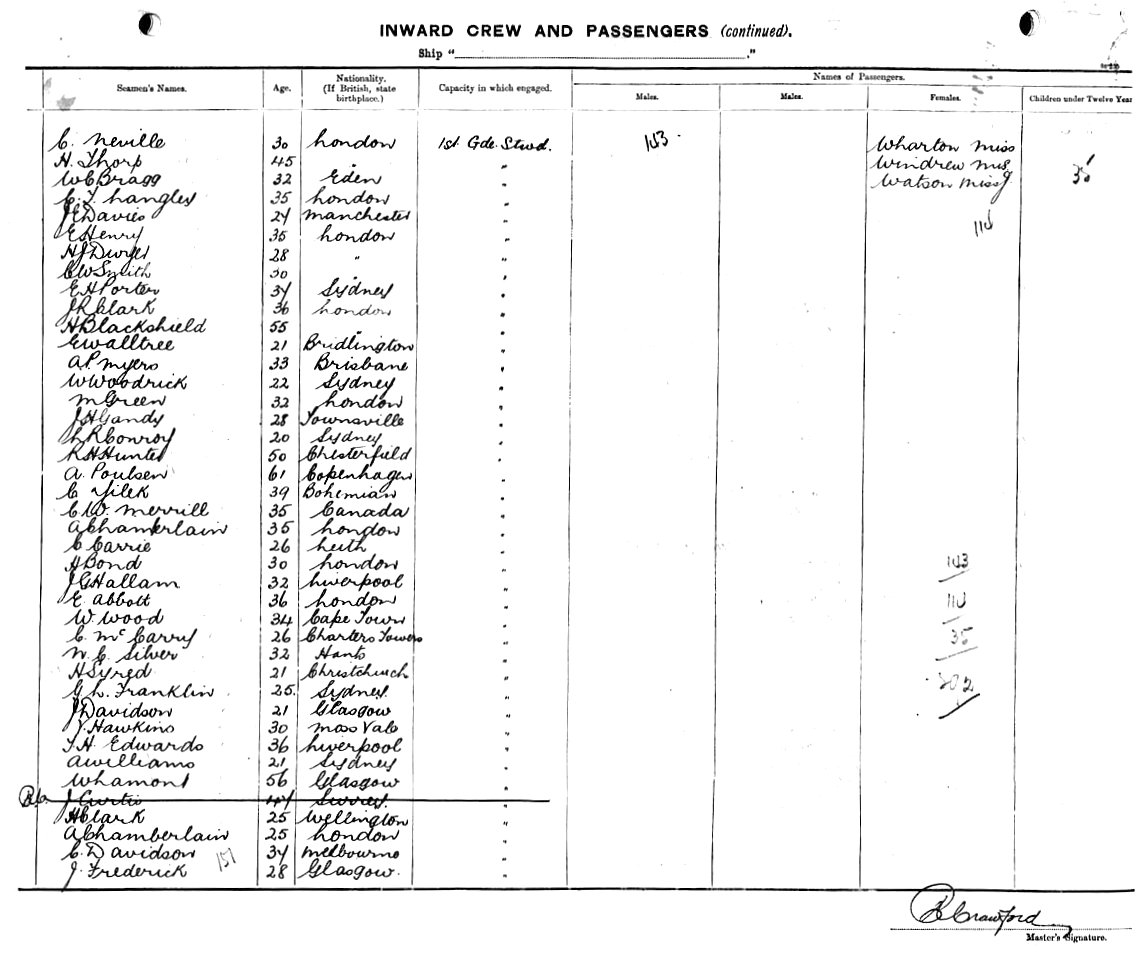 INWARD CREW AND PASSENGERS (continued).
Ship " "
Names of Passengers.
Seamen's Names. Age. Nationality. (If British, state birthplace.) Capacity in which engaged. Males. Males. Females. Children under Twelve Year
C. Neville 30 London 1st Gde. Stwd. 103 Wharton Miss
H. Thorp 45 " " Windrew Miss
W C Bragg 32 Eden " Watson Miss 35
C. T. Langley 35 London "
J E Davies 24 Manchester "
E Henry 35 London " 110
H J Dwyer 28 " "
C W Smith 30 " "
E H Porter 34 Sydney "
J R Clark 36 London "
H Blackshield 55 " "
E Walltree 21 Bridlington "
A. P. Myers 33 Brisbane "
W Woodrick 22 Sydney "
M Green 32 London "
J H Gandy 28 Townsville "
L R Conroy 20 Sydney "
R H Hunter 50 Chesterfield "
A. Poulsen 61 Copenhagen "
C Yilek 39 Bohemian "
C. W. Merrill 35 Canada "
A Chamberlain 35 London "
C Carrie 26 Leith "
H Bond 30 London " 103
J G Hallam 32 Liverpool "
E. Abbott 36 London " 110
W. Wood 34 Cape Town "
C. McCarry 26 Charters Towers " 35
W. C. Silver 32 Hants "
H Syred 21 Christchurch "
G L. Franklin 25. Sydney "
J Davidson 21 Glasgow "
J. Hawkins 30 Moss Vale "
T. H. Edwards 36 Liverpool "
A Williams 21 Sydney "
W Lamont 56 Glasgow "
J Curtis 47 Surrey "
H Clark 25 Wellington "
A Chamberlain 25 London "
C. Davidson 34 Melbourne "
J. Frederick 151 28 Glasgow. "
Crawford
Master's Signature.